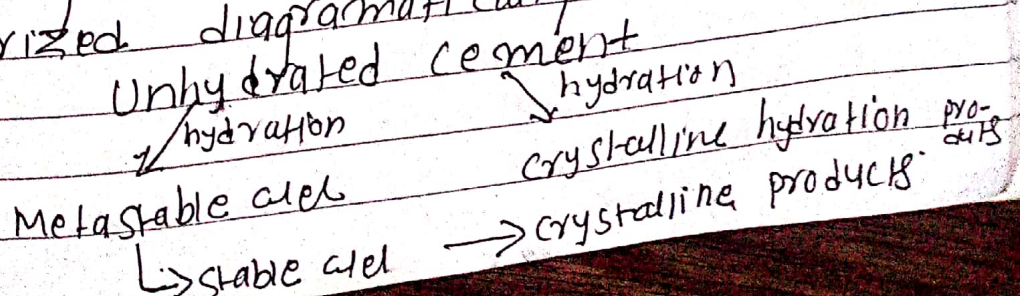 rized diagramatically
Unhydrated cement
hydration hydration
Metastable Gel crystalline hydration pro-
ducts
↳ stable Gel → crystalline products.